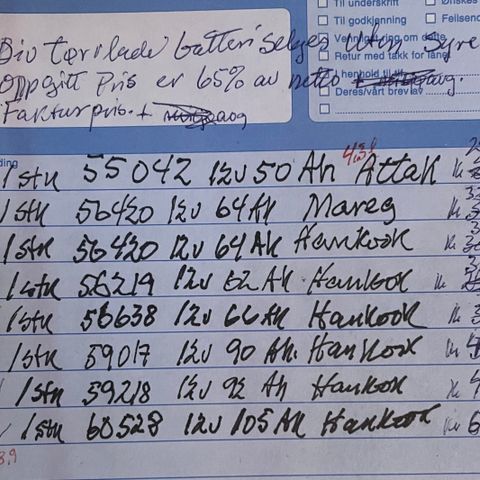 Til underskrift
Ønskes
Til godkjenning
Felisend
Vennlig
om dette
Retur med takk for lån
I henhold til
Deres/vårt brev av
Div tørrladede batteri selges uten syre
Oppgitt Pris er 65% av netto
Fakturpris. +
ding
1 stk 55042 12v 50 Ah Attak kr
1 stk 56420 12v 64 Ah Mareg kr
1 stk 56420 12v 64 Ah Hankook kr
1 stk 56219 12v 62 Ah Hankook kr
1 stk 56638 12v 66 Ah Hankook kr
1 stk 59017 12v 90 Ah. Hankook kr
1 stk 59218 12v 92 Ah Hankook kr
1 stk 60528 12v 105 Ah Hankook kr